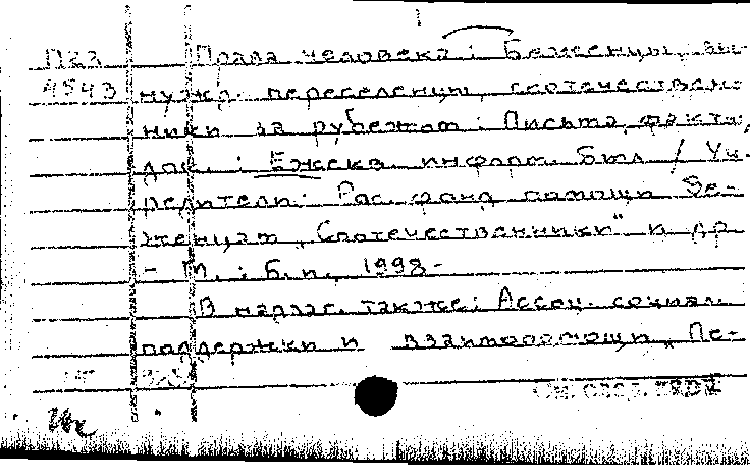 П22 Права человека: Беженцы, вы-
4543 нужд. переселенцы, соотечествен-
ники за рубежом: Письма, факты,
док. : Ежекв. информ. бюл / Уч-
редители: Рос. фонд помощи бе-
женцам "Соотечественники" и др
- М. : Б.и., 1998-
В надзаг. также: Ассоц. социал.
поддержки и взаимопомощи "Пе-